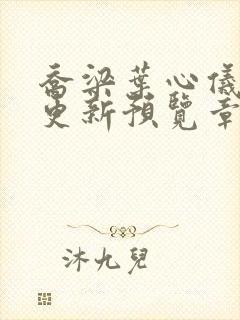 喬梁葉心儀
更新預覽章
沐九兒